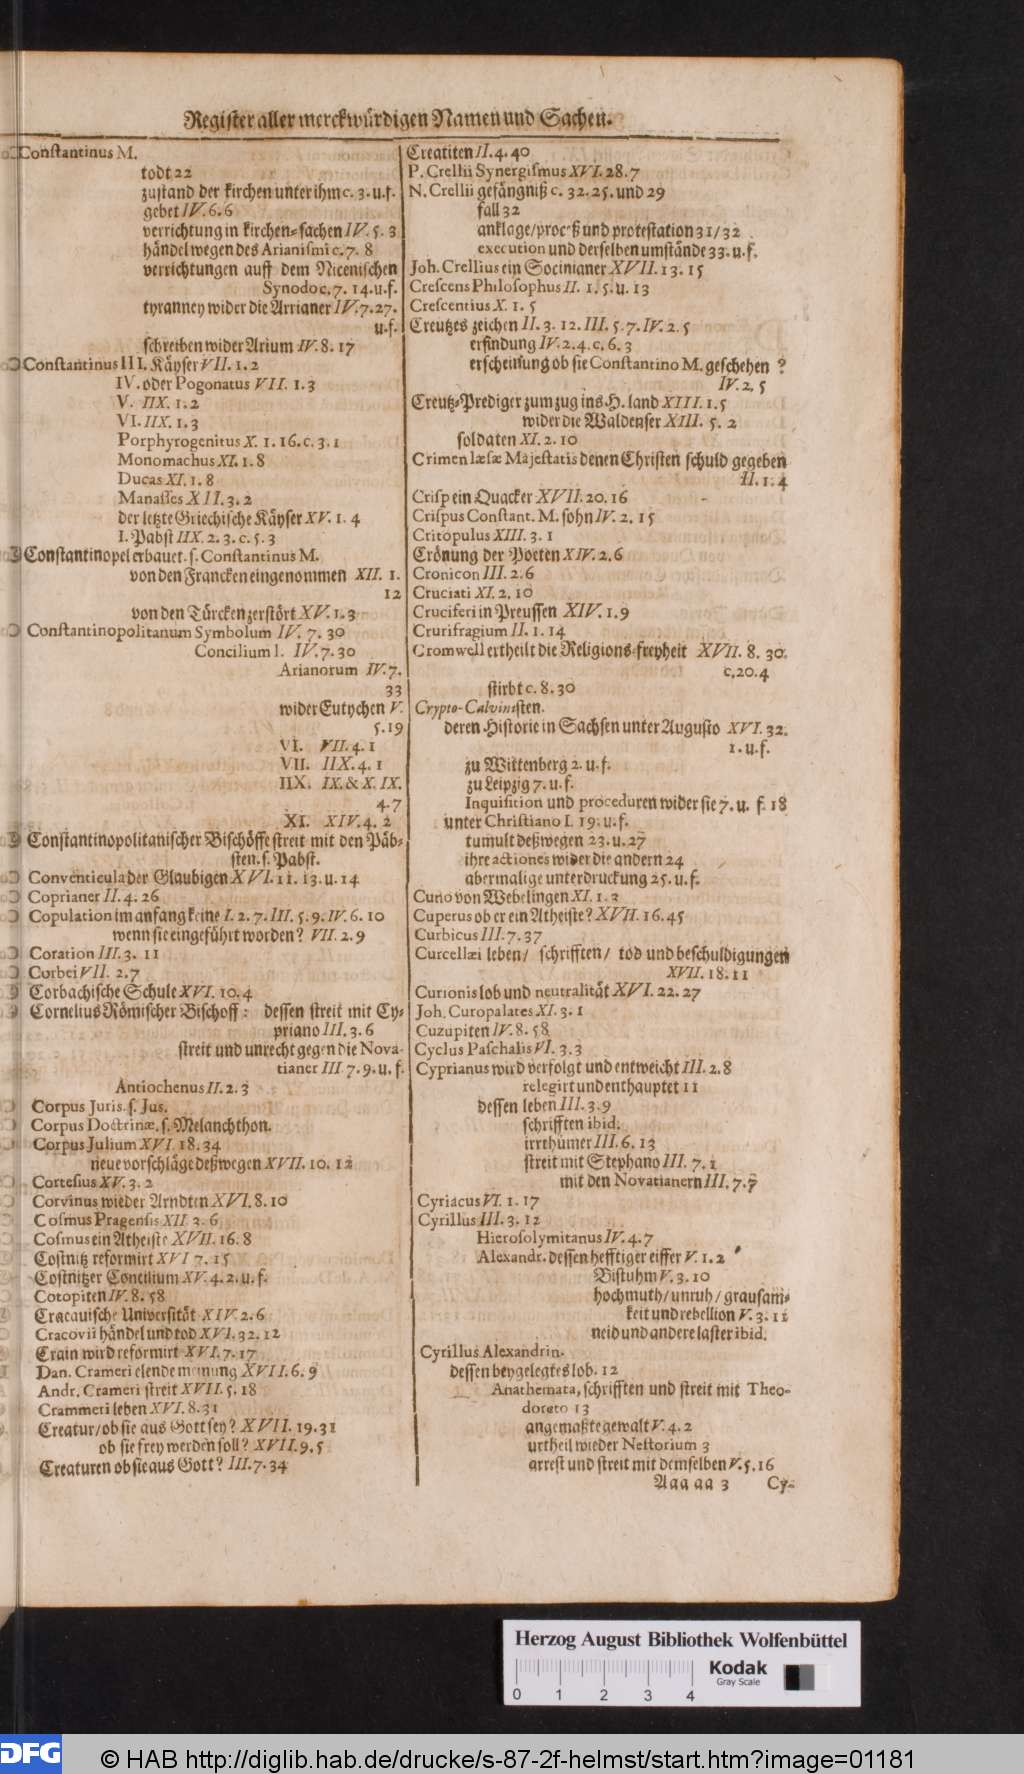 Register aller merckwürdigen Namen und Sachen.
Constantinus M.
todt 22
zustand der kirchen unter ihm c. 3. u. f.
gebet IV. 6. 6
verrichtung in kirchen-sachen IV. 5. 3
händel wegen des Arianismi c. 7. 8
verrichtungen auff dem Nicenischen
Synodo c. 7. 14. u. f.
tyranney wider die Arrianer IV. 7. 27.
u. f.
schreiben wider Arium IV. 8. 17
Constantinus III. Käyser VII. 1. 2
IV. oder Pogonatus VII. 1. 3
V. IIX. 1. 2
VI. IIX. 1. 3
Porphyrogenitus X. 1. 16. c. 3. 1
Monomachus XI. 1. 8
Ducas XI. 1. 8
Manasses XII. 3. 2
der letzte Griechische Käyser XV. 1. 4
I. Pabst IIX. 2. 3. c. 5. 3
Constantinopel erbauet. s. Constantinus M.
von den Francken eingenommen XII. 1.
12
von den Türcken zerstört XV. 1. 3
Constantinopolitanum Symbolum IV. 7. 30
Concilium I. IV. 7. 30
Arianorum IV. 7.
33
wider Eutychen V.
5. 19
VI. VII. 4. 1
VII. IIX. 4. 1
IIX. IX. & X. IX.
4. 7
XI. XIV. 4. 2
Constantinopolitanischer Bischöffe streit mit den Päb-
sten. s. Pabst.
Conventicula der Glaubigen XVI. 11. 13. u. 14
Coprianer II. 4. 26
Copulation im anfang keine I. 2. 7. III. 5. 9. IV. 6. 10
wenn sie eingeführt worden? VII. 2. 9
Coration III. 3. 11
Corbei VII. 2. 7
Corbachische Schule XVI. 10. 4
Cornelius Römischer Bischoff: dessen streit mit Cy-
priano III. 3. 6
streit und unrecht gegen die Nova-
tianer III. 7. 9. u. f.
Antiochenus II. 2. 3
Corpus Juris. s. Jus.
Corpus Doctrinæ. s. Melanchthon.
Corpus Julium XVI. 18. 34
neue vorschläge deßwegen XVII. 10. 12
Cortesius XV. 3. 2
Corvinus wieder Arndten XVI. 8. 10
Cosmus Pragensis XII. 3. 6
Cosmus ein Atheiste XVII. 16. 8
Costnitz reformirt XVI. 7. 15
Costnitzer Concilium XV. 4. 2. u. f.
Cotopiten IV. 8. 58
Cracauische Universität XIV. 2. 6
Cracovii händel und tod XVI. 32. 12
Crain wird reformirt XVI. 7. 17
Dan. Crameri elende meinung XVII. 6. 9
Andr. Crameri streit XVII. 5. 18
Crammeri leben XVI. 8. 31
Creatur / ob sie aus Gott sey? XVII. 19. 31
ob sie frey werden soll? XVII. 9. 5
Creaturen ob sie aus Gott? III. 7. 34
Creatiten II. 4. 40
P. Crellii Synergismus XVI. 28. 7
N. Crellii gefängniß c. 32. 25. und 29
fall 32
anklage / proceß und protestation 31 / 32
execution und derselben umstände 33. u. f.
Joh. Crellius ein Socinianer XVII. 13. 15
Crescens Philosophus II. 1. 5. u. 13
Crescentius X. 1. 5
Creutzes zeichen II. 3. 12. III. 5. 7. IV. 2. 5
erfindung IV. 2. 4. c. 6. 3
erscheinung ob sie Constantino M. geschehen?
IV. 2. 5
Creutz-Prediger zum zug ins H. land XIII. 1. 5
wider die Waldenser XIII. 5. 2
soldaten XI. 2. 10
Crimen læsæ Majestatis denen Christen schuld gegeben
II. 1. 4
Crisp ein Quacker XVII. 20. 16
Crispus Constant. M. sohn IV. 2. 15
Critopulus XIII. 3. 1
Crönung der Poeten XIV. 2. 6
Cronicon III. 2. 6
Cruciati XI. 2. 10
Cruciferi in Preussen XIV. 1. 9
Crurifragium II. 1. 14
Cromwell ertheilt die Religions-freyheit XVII. 8. 30.
c. 20. 4
stirbt c. 8. 30
Crypto-Calvinisten.
deren Historie in Sachsen unter Augusto XVI. 32.
1. u. f.
zu Wittenberg 2. u. f.
zu Leipzig 7. u. f.
Inquisition und proceduren wider sie 7. u. f. 18
unter Christiano I. 19. u. f.
tumult deßwegen 23. u. 27
ihre actiones wider die andern 24
abermalige unterdruckung 25. u. f.
Cuno von Webelingen XI. 1. 3
Cuperus ob er ein Atheiste? XVII. 16. 45
Curbicus III. 7. 37
Curcellæi leben / schrifften / tod und beschuldigungen
XVII. 18. 11
Curionis lob und neutralität XVI. 22. 27
Joh. Curopalates XI. 3. 1
Cuzupiten IV. 8. 58
Cyclus Paschalis VI. 3. 3
Cyprianus wird verfolgt und entweicht III. 2. 8
relegirt und enthauptet 11
dessen leben III. 3. 9
schrifften ibid.
irrthümer III. 6. 13
streit mit Stephano III. 7. 1
mit den Novatianern III. 7. 7
Cyriacus VI. 1. 17
Cyrillus III. 3. 12
Hierosolymitanus IV. 4. 7
Alexandr. dessen hefftiger eiffer V. 1. 2
Bistuhm V. 3. 10
hochmuth / unruh / grausam-
keit und rebellion V. 3. 11
neid und andere laster ibid.
Cyrillus Alexandrin.
dessen beygelegtes lob. 12
Anathemata, schrifften und streit mit Theo-
doreto 13
angemaßte gewalt V. 4. 2
urtheil wieder Nestorium 3
arrest und streit mit demselben V. 5. 16
Aaa aa 3 Cy-
Herzog August Bibliothek Wolfenbüttel
Kodak
Gray Scale
0 1 2 3 4
DFG © HAB http://diglib.hab.de/drucke/s-87-2f-helmst/start.htm?image=01181